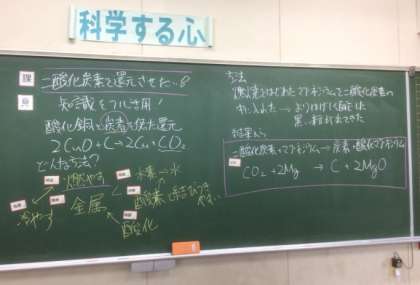 科学する心
課
二酸化炭素を還元させたい
知識をフル活用！
酸化銅と炭素を使った還元
2CuO + C → 2Cu + CO₂
どんな方法？
燃やす
水素→水
金属
酸素と結びつき
やすい
冷やす
酸化
方法
燃焼をはじめたマグネシウムを二酸化炭素の
中に入れた→よりはげしく
黒い粉が出てきた
結果から
二酸化炭素+マグネシウム→炭素+酸化マグネシウム
CO₂ + 2Mg → C + 2MgO